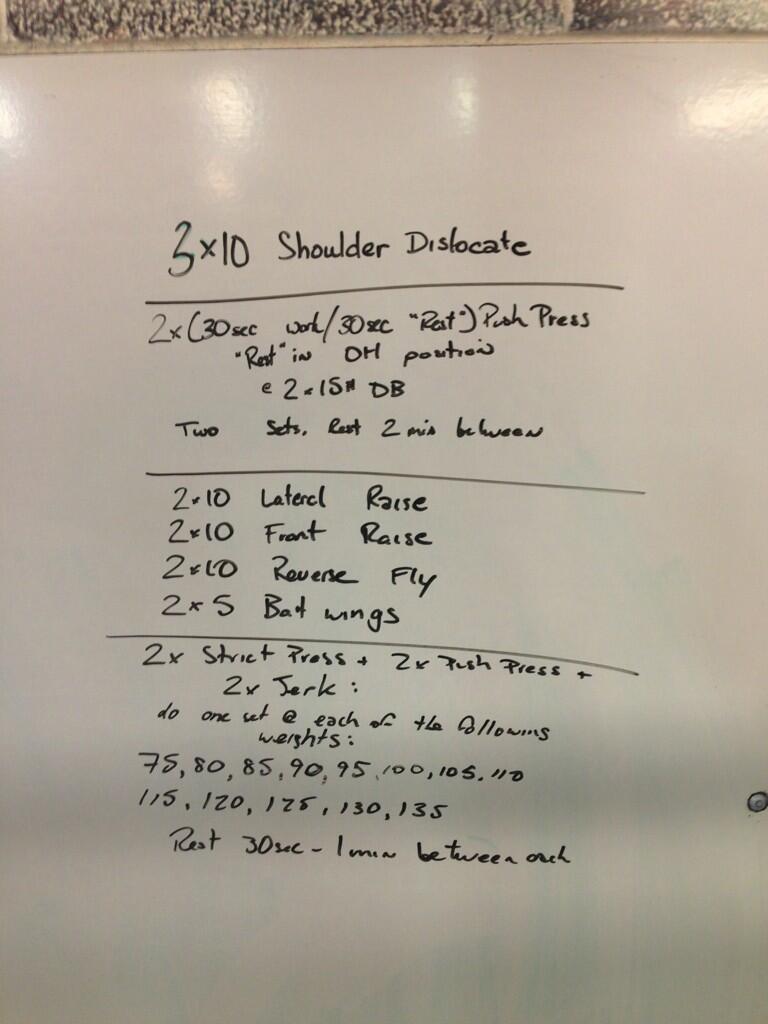 3x10 Shoulder Dislocate
2x (30sec work/30sec "Rest") Push Press
"Rest" in OH position
@ 2x15# DB
Two Sets. Rest 2 min between
2x10 Lateral Raise
2x10 Front Raise
2x10 Reverse Fly
2x5 Bat wings
2x Strict Press + 2x Push Press +
2x Jerk:
do one set @ each of the following
weights:
75, 80, 85, 90, 95, 100, 105, 110
115, 120, 125, 130, 135
Rest 30sec - 1min between each